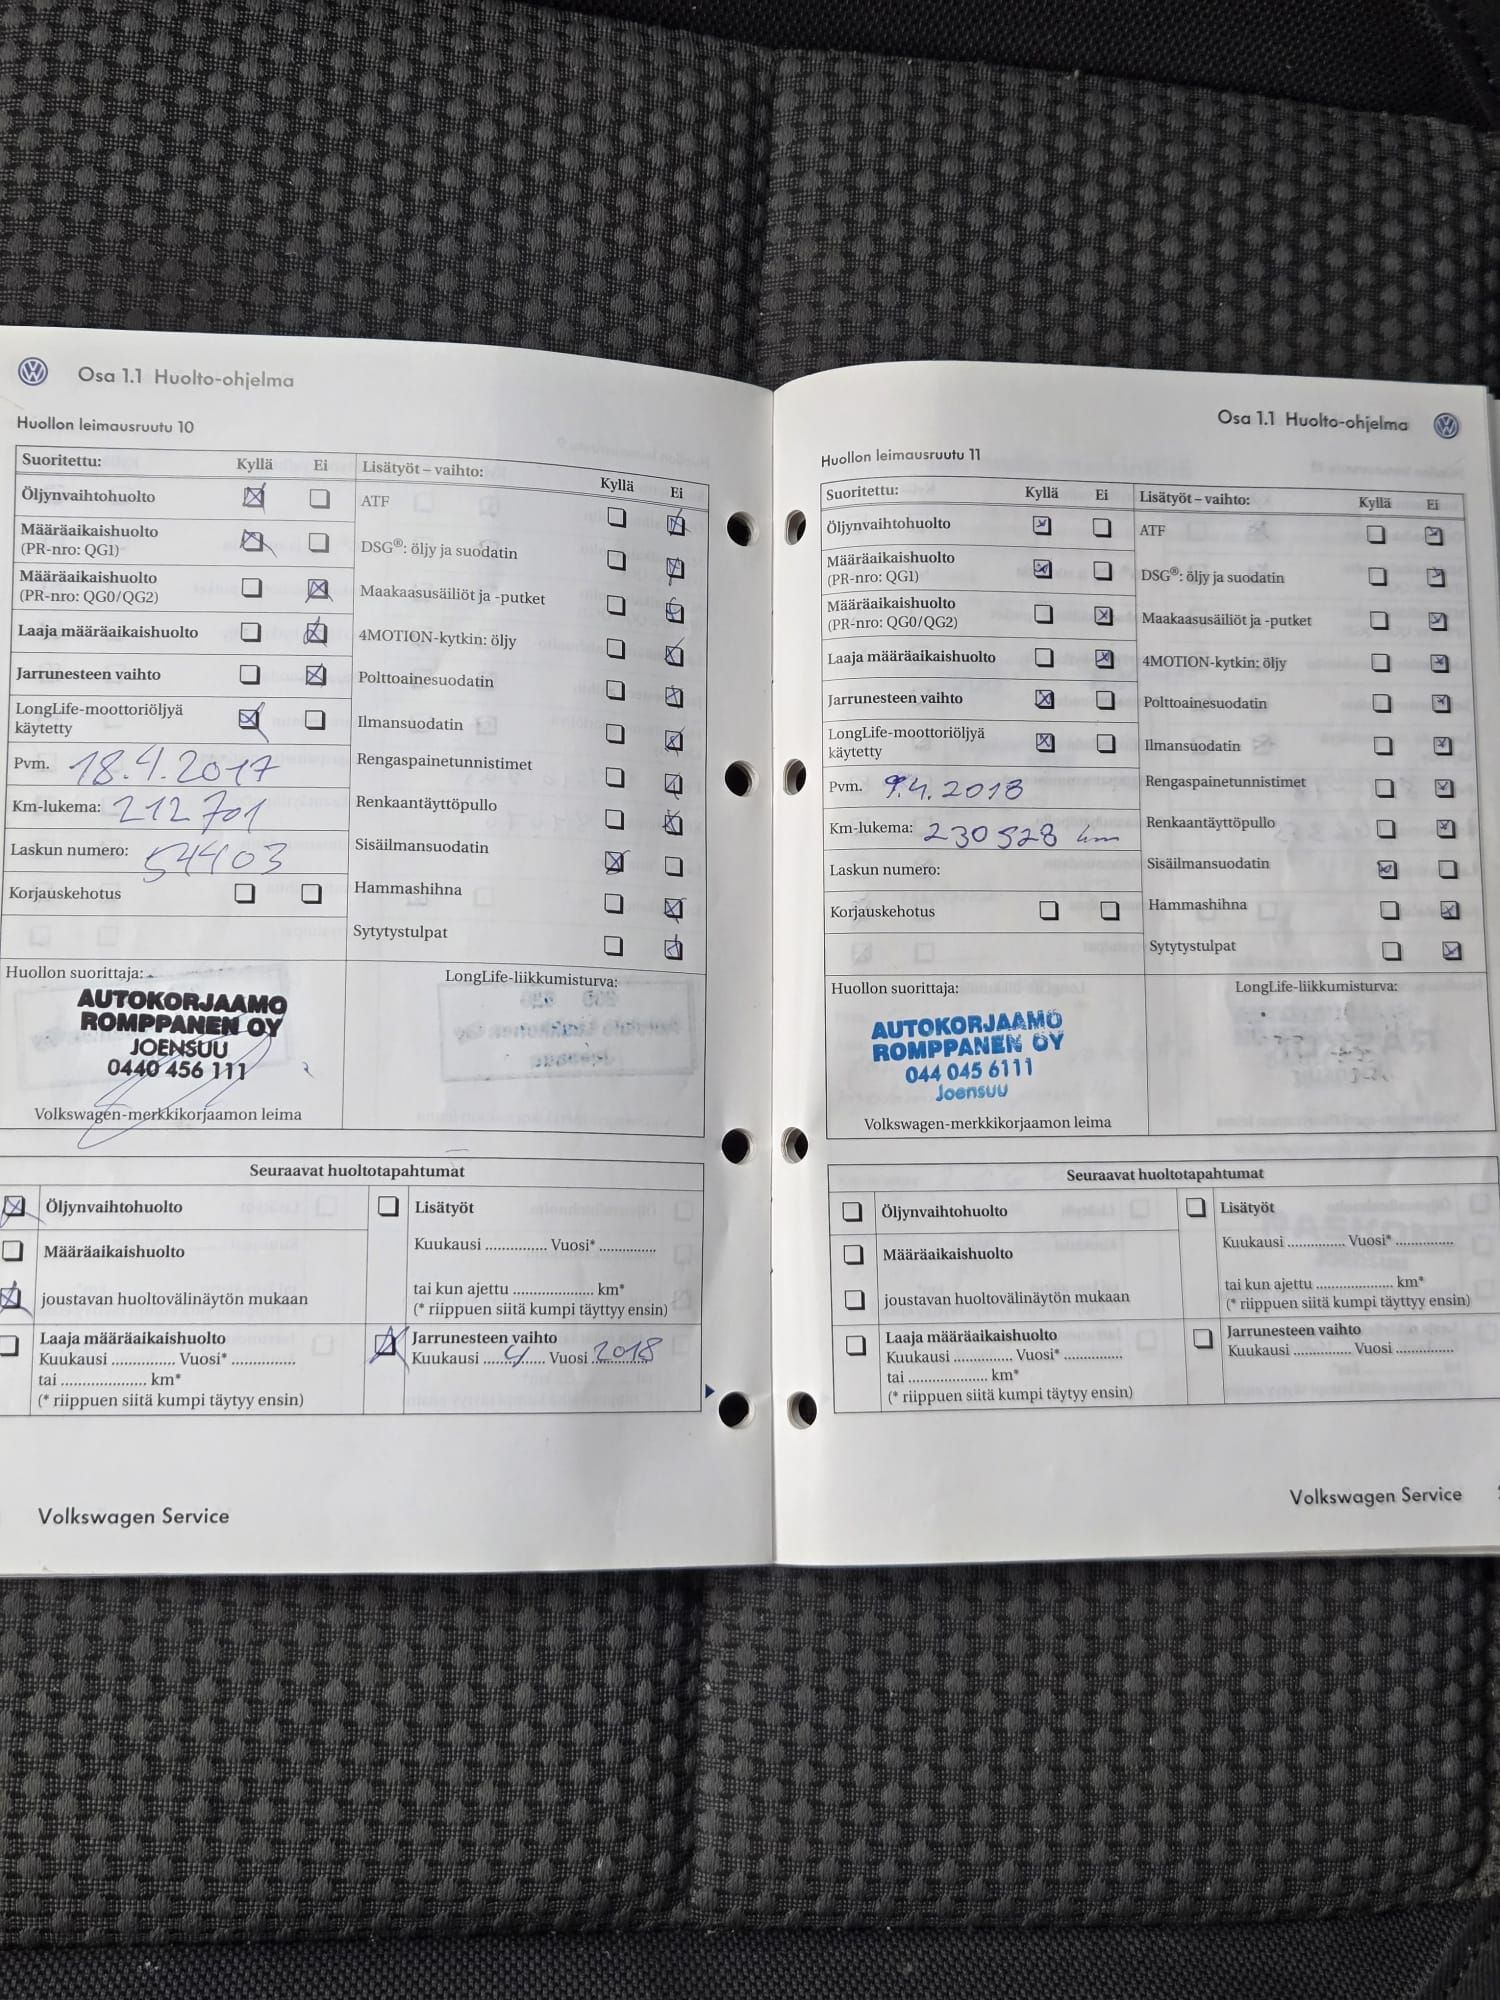 Osa 1.1 Huolto-ohjelma
Huollon leimausruutu 10
Suoritettu: Kyllä Ei
Öljynvaihtohuolto
Määräaikaishuolto
(PR-nro: QG1)
Määräaikaishuolto
(PR-nro: QG0/QG2)
Laaja määräaikaishuolto
Jarrunesteen vaihto
LongLife-moottoriöljyä
käytetty
Pvm. 18.4.2017
Km-lukema: 212 701
Laskun numero: 54403
Korjauskehotus
Lisätyöt – vaihto: Kyllä Ei
ATF
DSG®: öljy ja suodatin
Maakaasusäiliöt ja -putket
4MOTION-kytkin: öljy
Polttoainesuodatin
Ilmansuodatin
Rengaspainetunnistimet
Renkaantäyttöpullo
Sisäilmansuodatin
Hammashihna
Sytytystulpat
Huollon suorittaja:
AUTOKORJAAMO
ROMPPANEN OY
JOENSUU
0440 456 111
Volkswagen-merkkikorjaamon leima
LongLife-liikkumisturva:
Seuraavat huoltotapahtumat
Öljynvaihtohuolto
Määräaikaishuolto
joustavan huoltovälinäytön mukaan
Laaja määräaikaishuolto
Kuukausi ............... Vuosi* ...............
tai .................... km*
(* riippuen siitä kumpi täytyy ensin)
Lisätyöt
Kuukausi ............... Vuosi* ...............
tai kun ajettu .................... km*
(* riippuen siitä kumpi täyttyy ensin)
Jarrunesteen vaihto
Kuukausi 4 Vuosi 2018
Volkswagen Service
Osa 1.1 Huolto-ohjelma
Huollon leimausruutu 11
Suoritettu: Kyllä Ei
Öljynvaihtohuolto
Määräaikaishuolto
(PR-nro: QG1)
Määräaikaishuolto
(PR-nro: QG0/QG2)
Laaja määräaikaishuolto
Jarrunesteen vaihto
LongLife-moottoriöljyä
käytetty
Pvm. 9.4.2018
Km-lukema: 230 528 km
Laskun numero:
Korjauskehotus
Lisätyöt – vaihto: Kyllä Ei
ATF
DSG®: öljy ja suodatin
Maakaasusäiliöt ja -putket
4MOTION-kytkin: öljy
Polttoainesuodatin
Ilmansuodatin
Rengaspainetunnistimet
Renkaantäyttöpullo
Sisäilmansuodatin
Hammashihna
Sytytystulpat
Huollon suorittaja:
AUTOKORJAAMO
ROMPPANEN OY
044 045 6111
Joensuu
Volkswagen-merkkikorjaamon leima
LongLife-liikkumisturva:
Seuraavat huoltotapahtumat
Öljynvaihtohuolto
Määräaikaishuolto
joustavan huoltovälinäytön mukaan
Laaja määräaikaishuolto
Kuukausi ............... Vuosi* ...............
tai .................... km*
(* riippuen siitä kumpi täytyy ensin)
Lisätyöt
Kuukausi ............... Vuosi* ...............
tai kun ajettu .................... km*
(* riippuen siitä kumpi täyttyy ensin)
Jarrunesteen vaihto
Kuukausi ............... Vuosi ...............
Volkswagen Service